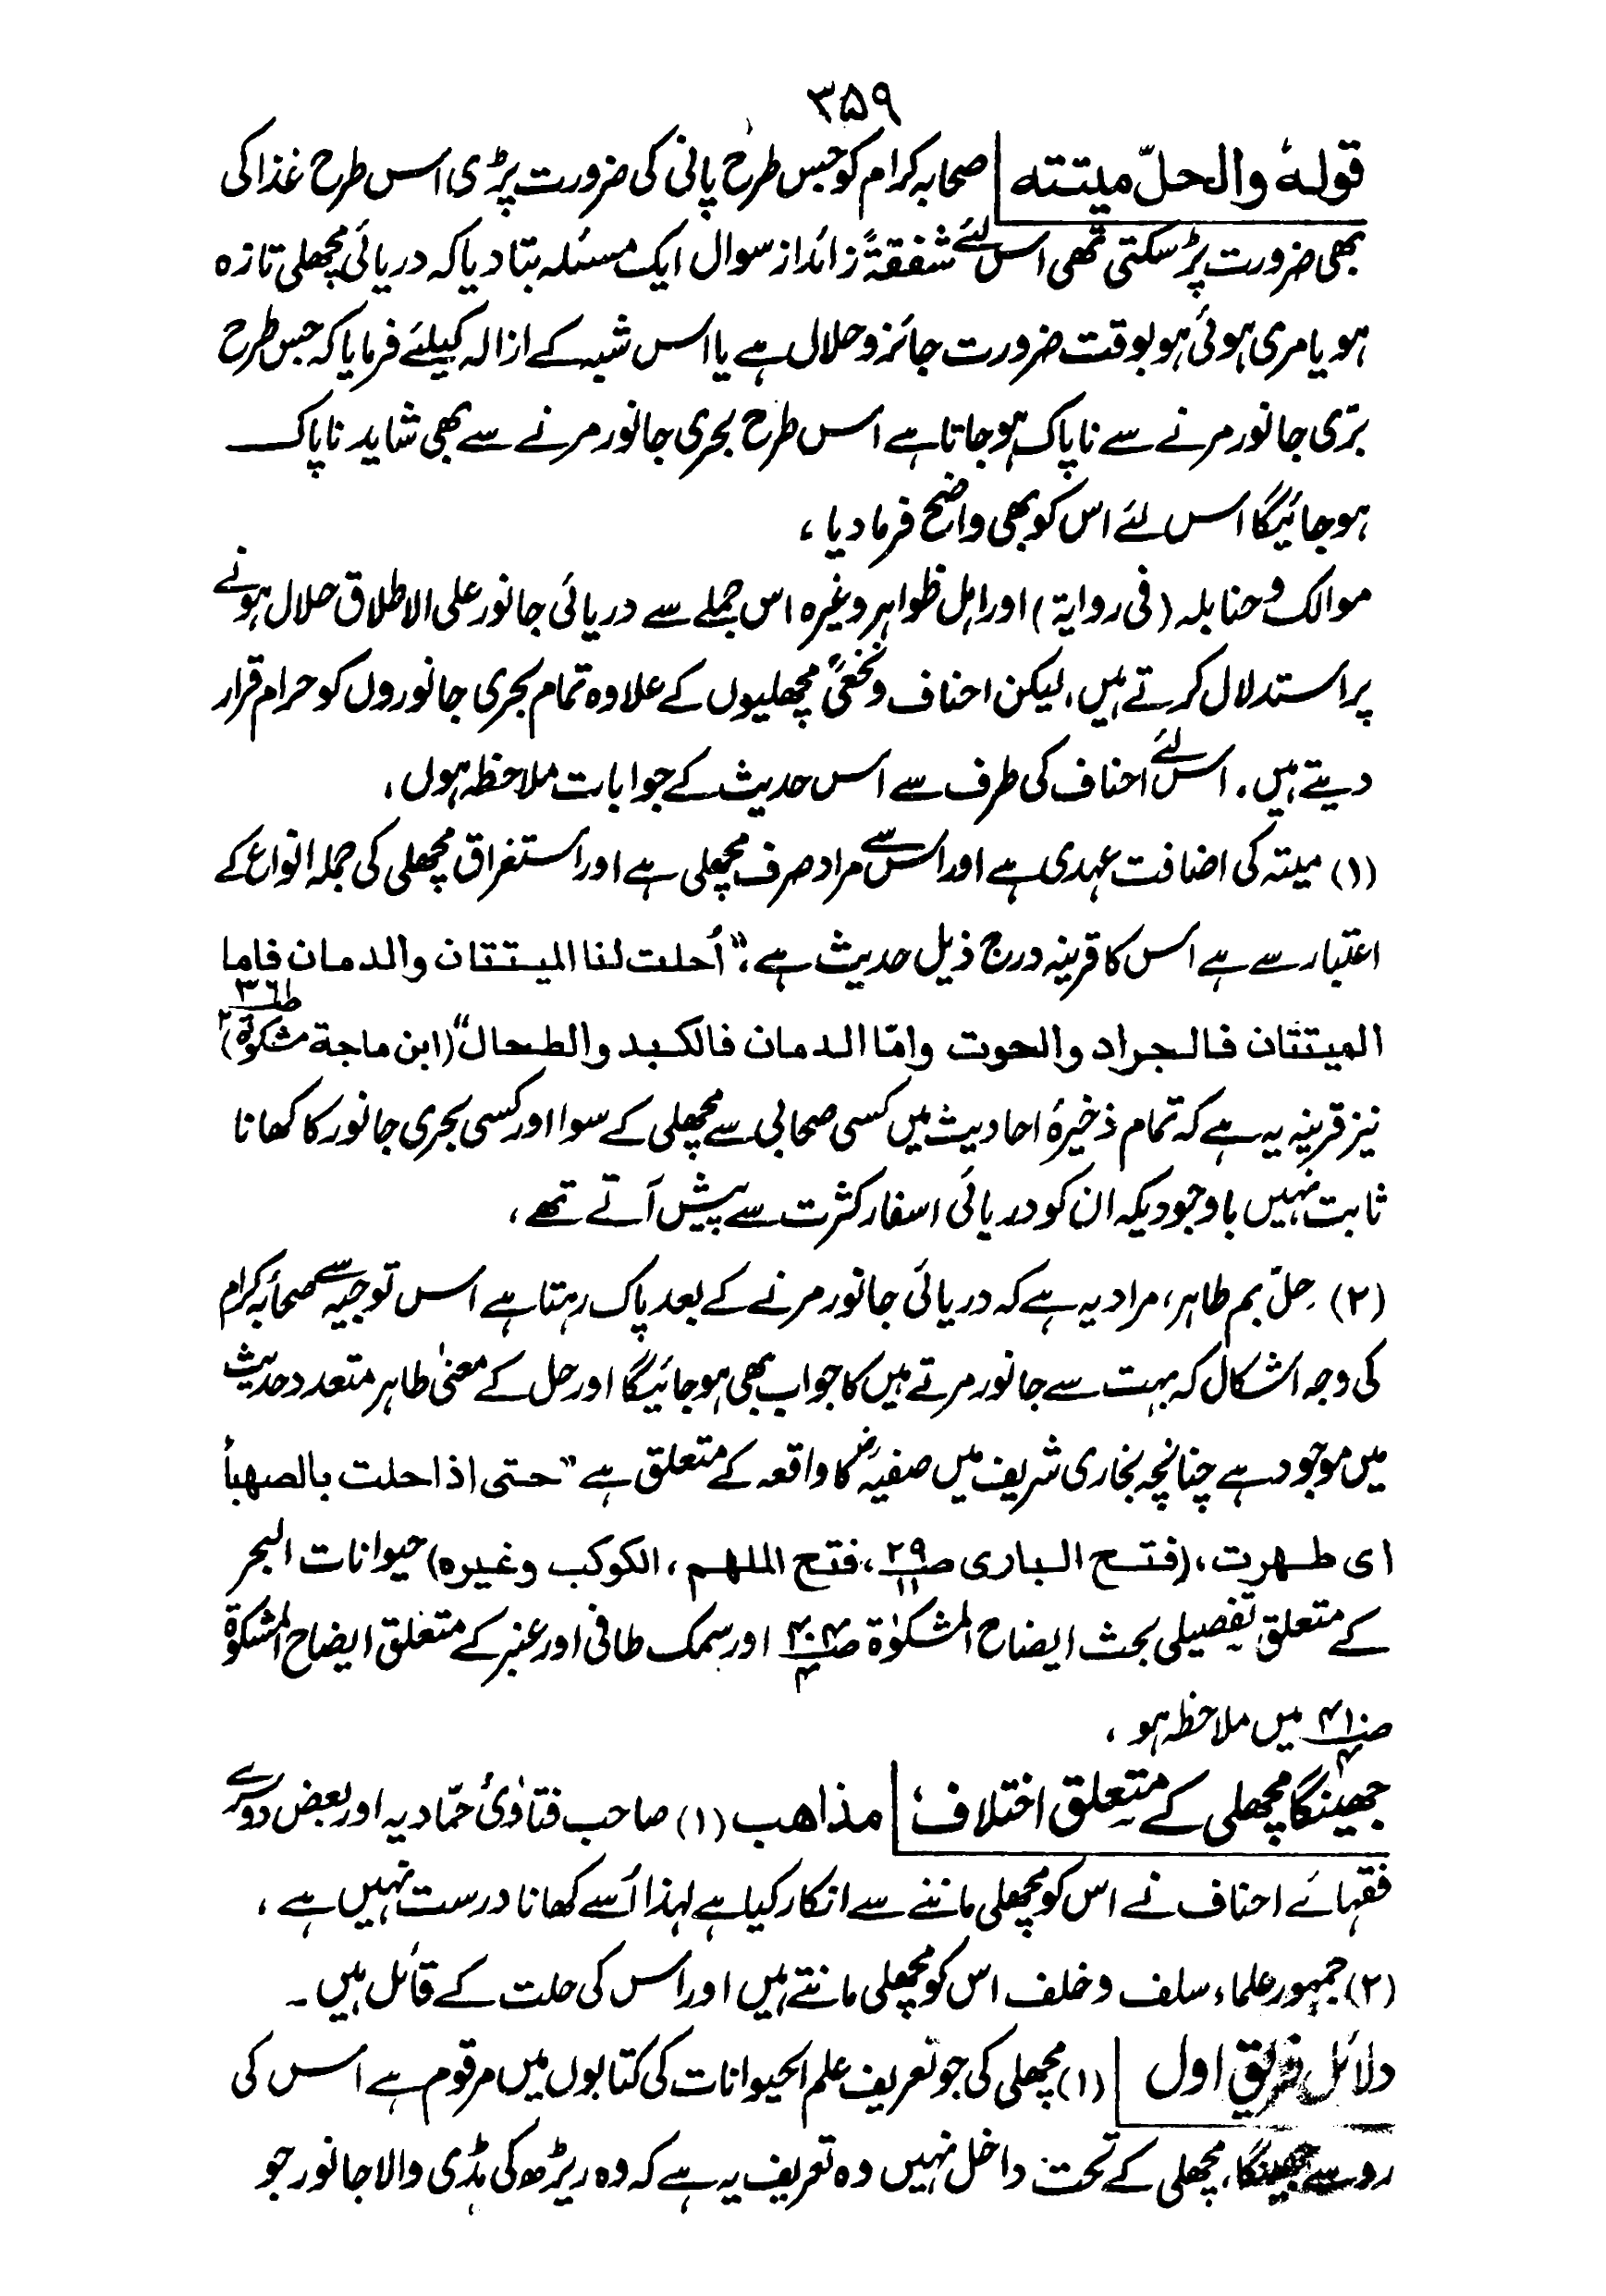 ۳۵۹
قولہٗ والحلّ میتتہ | صحابہ کرام کو جس طرح پانی کی ضرورت پڑی اس طرح غذا کی
بھی ضرورت پڑ سکتی تھی اس لئے شفقۃً زائد از سوال ایک مسئلہ بتا دیا کہ دریائی مچھلی تازہ
ہو یا مری ہوئی ہو بوقت ضرورت جائز و حلال ہے یا اس شبہ کے ازالہ کیلئے فرمایا کہ جس طرح
برّی جانور مرنے سے ناپاک ہو جاتا ہے اس طرح بحری جانور مرنے سے بھی شاید ناپاک
ہو جائیگا اس لئے اس کو بھی واضح فرما دیا ،
موالک و حنابلہ (فی روایۃ) اور اہل ظواہر وغیرہ اس جملے سے دریائی جانور علی الاطلاق حلال ہونے
پر استدلال کرتے ہیں، لیکن احناف و نخعیؒ مچھلیوں کے علاوہ تمام بحری جانوروں کو حرام قرار
دیتے ہیں۔ اس لئے احناف کی طرف سے اس حدیث کے جوابات ملاحظہ ہوں ،
(۱) میتہ کی اضافت عہدی ہے اور اس سے مراد صرف مچھلی ہے اور استغراق مچھلی کی جملہ انواع کے
اعتبار سے ہے اس کا قرینہ درج ذیل حدیث ہے، ”أحلت لنا المیتتان والدمان فاما
المیتتان فالجراد والحوت وامّا الدمان فالکبد والطحال“ (ابن ماجة مشکوٰۃ ص۳۶۱ ج۲)
نیز قرینہ یہ ہے کہ تمام ذخیرۂ احادیث میں کسی صحابی سے مچھلی کے سوا اور کسی بحری جانور کا کھانا
ثابت نہیں باوجودیکہ ان کو دریائی اسفار کثرت سے پیش آتے تھے ،
(۲) حلّ بم طاہر، مراد یہ ہے کہ دریائی جانور مرنے کے بعد پاک رہتا ہے اس توجیہ سے صحابہ کرام
کی وجہ اشکال کہ بہت سے جانور مرتے ہیں کا جواب بھی ہو جائیگا اور حل کے معنیٰ طاہر متعدد حدیث
میں موجود ہے چنانچہ بخاری شریف میں صفیہؓ کا واقعہ کے متعلق ہے ”حتی اذا حلت بالصهبأ
ای طهرت، (فتح الباری ص۲۹/۱۱، فتح الملهم، الکوکب وغیرہ) حیوانات البحر
کے متعلق تفصیلی بحث ایضاح المشکوٰۃ ص۴۰۴/۴ اور سمک طافی اور عنبر کے متعلق ایضاح المشکوۃ
ص۴۱۰/۴ میں ملاحظہ ہو ،
جھینگا مچھلی کے متعلق اختلاف | مذاهب (۱) صاحب فتاویٰ حمّادیہ اور بعض دوسرے
فقہائے احناف نے اس کو مچھلی ماننے سے انکار کیا ہے لہذا اُسے کھانا درست نہیں ہے ،
(۲) جمہور علماء سلف و خلف اس کو مچھلی مانتے ہیں اور اس کی حلت کے قائل ہیں ۔
دلائل فریق اول | (۱) مچھلی کی جو تعریف علم الحیوانات کی کتابوں میں مرقوم ہے اس کی
رو سے جھینگا، مچھلی کے تحت داخل نہیں وہ تعریف یہ ہے کہ وہ ریڑھ کی ہڈی والا جانور جو